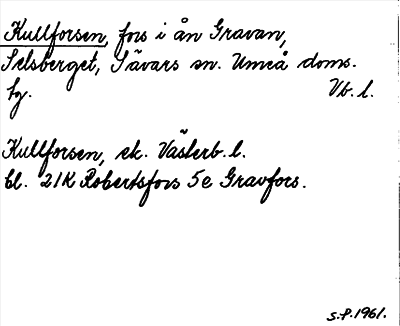 Kullforsen, fors i ån Gravan,
Selsberget, Sävars sn. Umeå doms.
tg. Vb. l.
Kullforsen, ek. Västerb. l.
bl. 21K Robertsfors 5e Gravfors.
S.P. 1961.